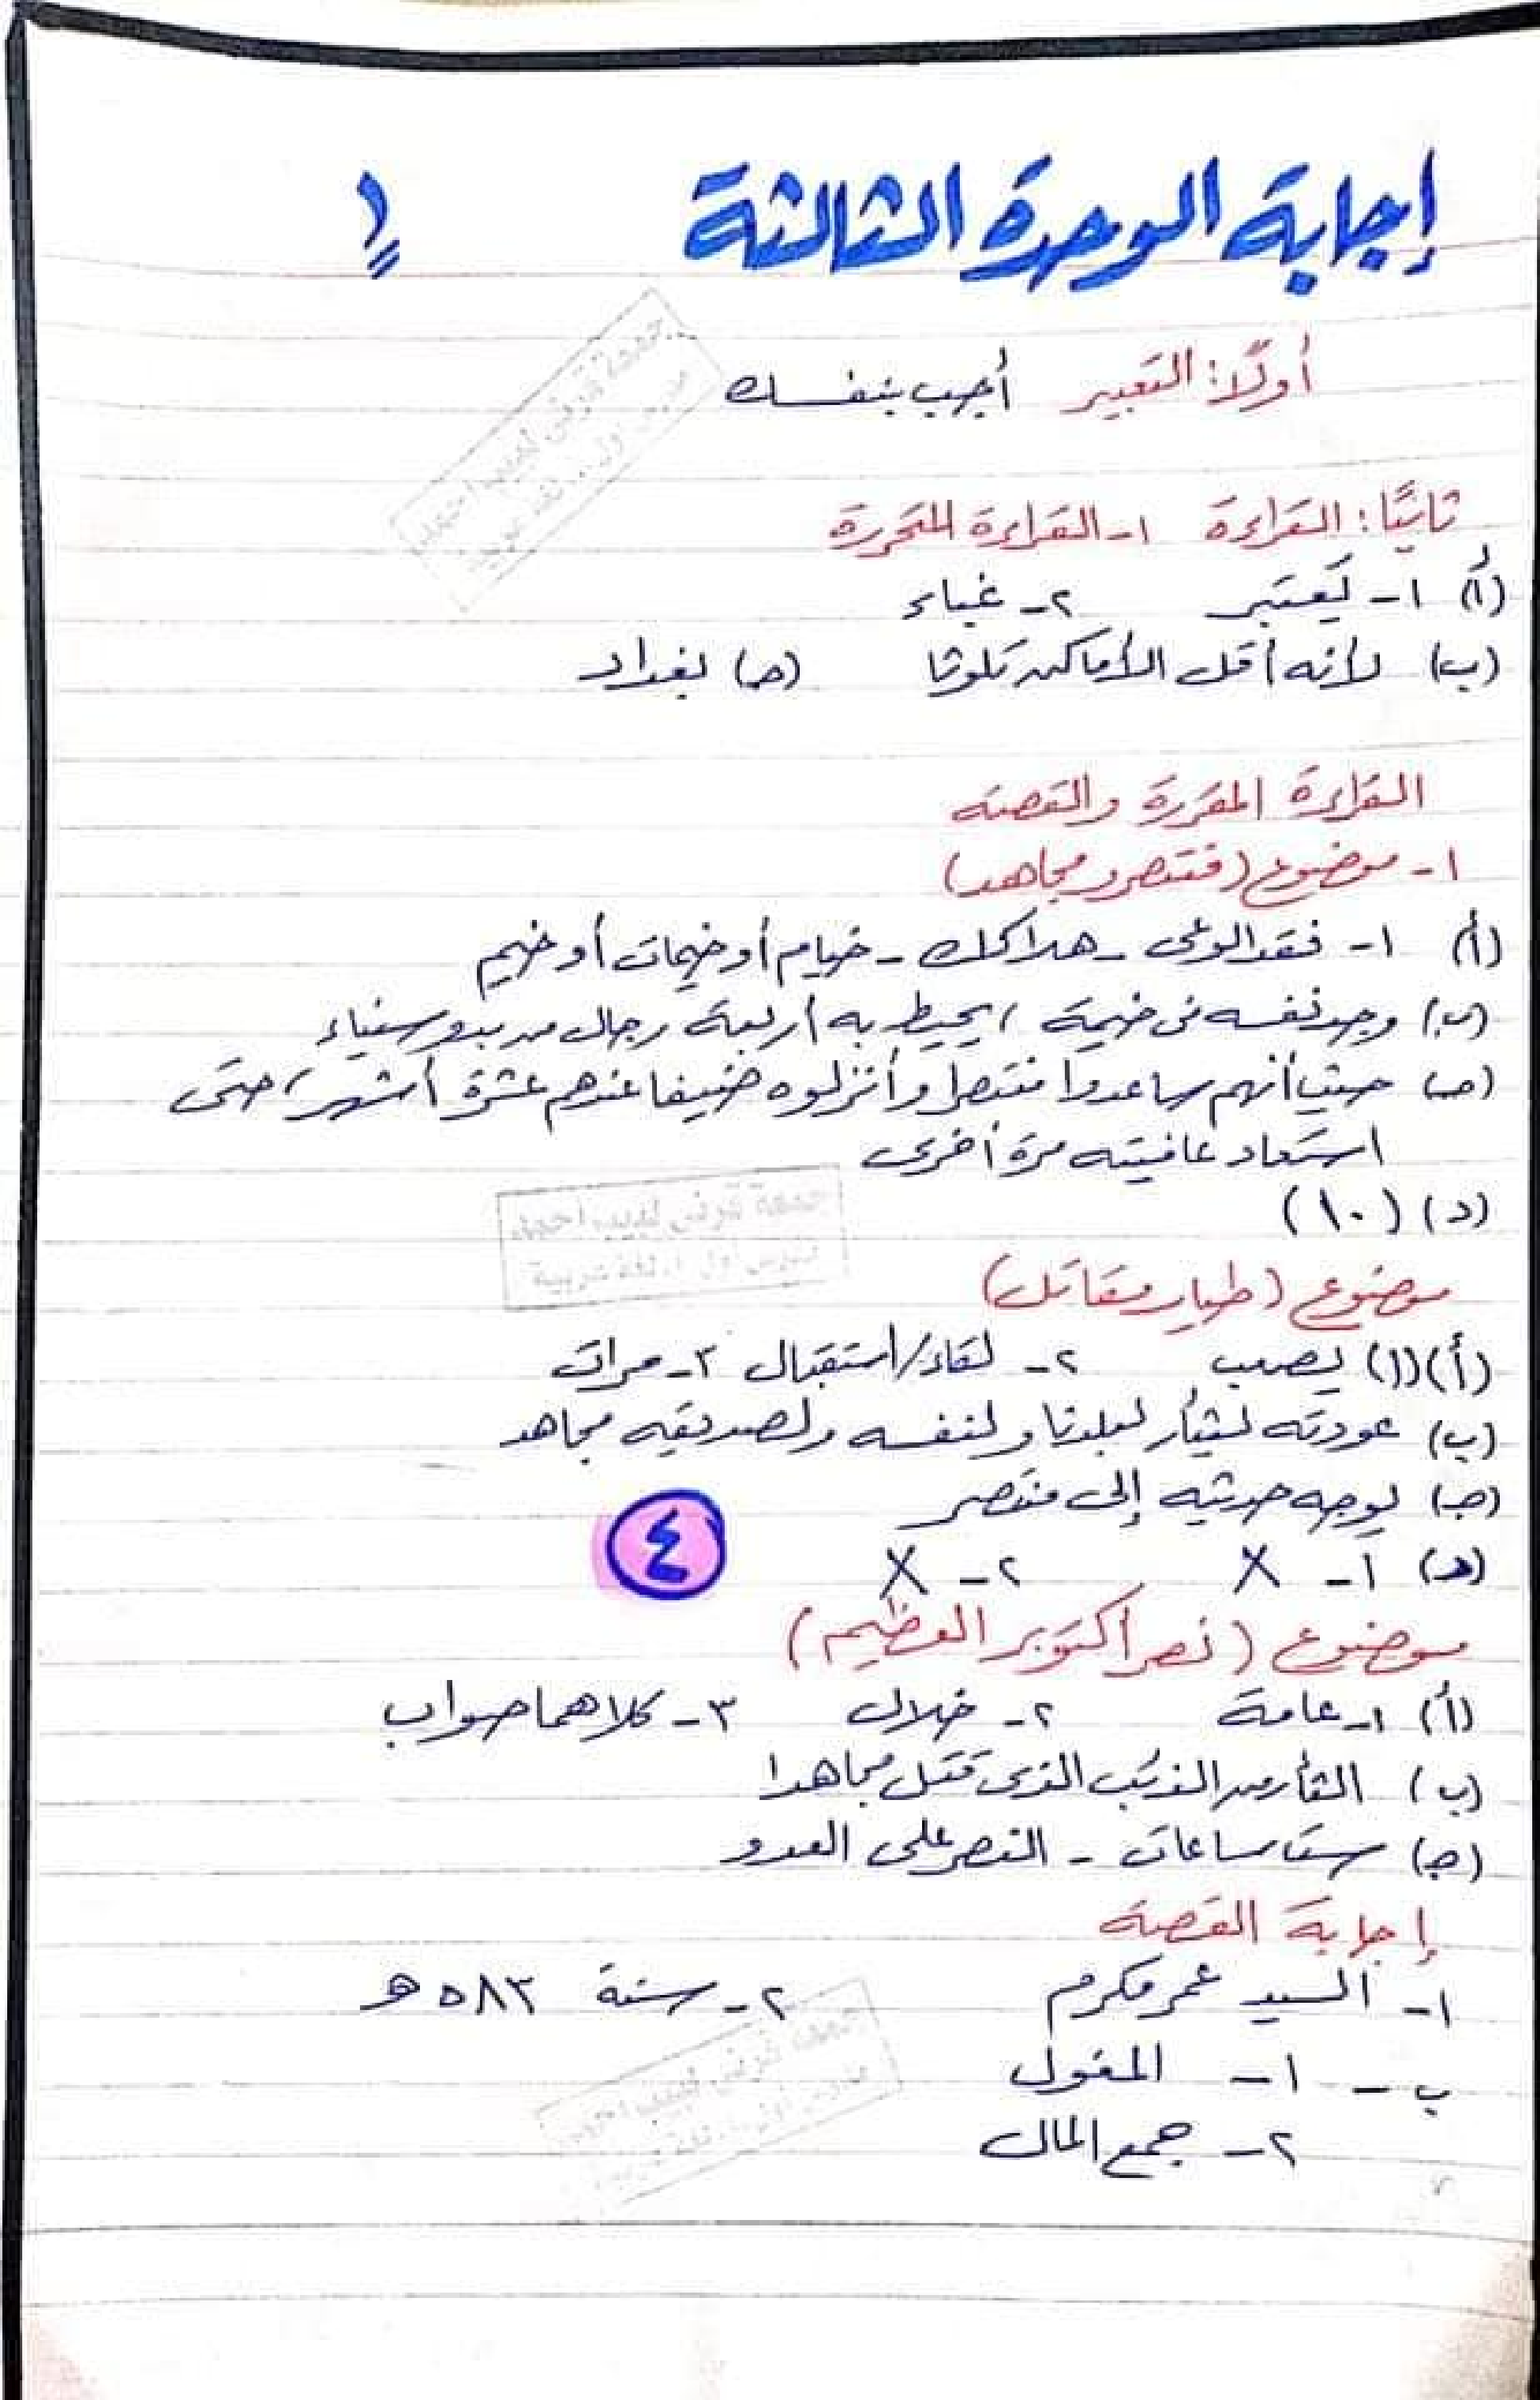 إجابة الوحدة الثالثة
أولًا: التعبير أجب بنفسك
ثانيًا: القراءة ١- القراءة المتحررة
(أ) ١- يعتبر ٢- غباء
(ب) لأنه أقل الأماكن تلوثا (حـ) بغداد
القراءة المقررة والقصة
١- موضوع (منتصر ومجاهد)
(أ) ١- فقد الوعى - هلاكك - خيام أو خيمات أو خيم
(ب) وجد نفسه فى خيمة ، يحيط به أربعة رجال من بدو سيناء
(حـ) حيث أنهم ساعدوا منتصرا وأنزلوه ضيفا عندهم عشرة أشهر، حتى
استعاد عافيته مرة أخرى
(د) (١٠)
موضوع (طيار مقاتل)
(أ) (١) يصيب ٢- لقاء/استقبال ٣- مرات
(ب) عودته ليثأر لبلدنا ولنفسه ولصديقه مجاهد
(جـ) يوجه حديثه إلى منتصر
(د) ١- X ٢- X
٤
موضوع (نصر أكتوبر العظيم)
(أ) ١- عامة ٢- خلال ٣- كلاهما صواب
(ب) الثأر من الذئب الذى قتل مجاهدا
(جـ) ست ساعات - النصر على العدو
إجابة القصة
١- السيد عمر مكرم ٢- سنة ٥٨٣ هـ
ب - ١- المغول
٢- جمع المال